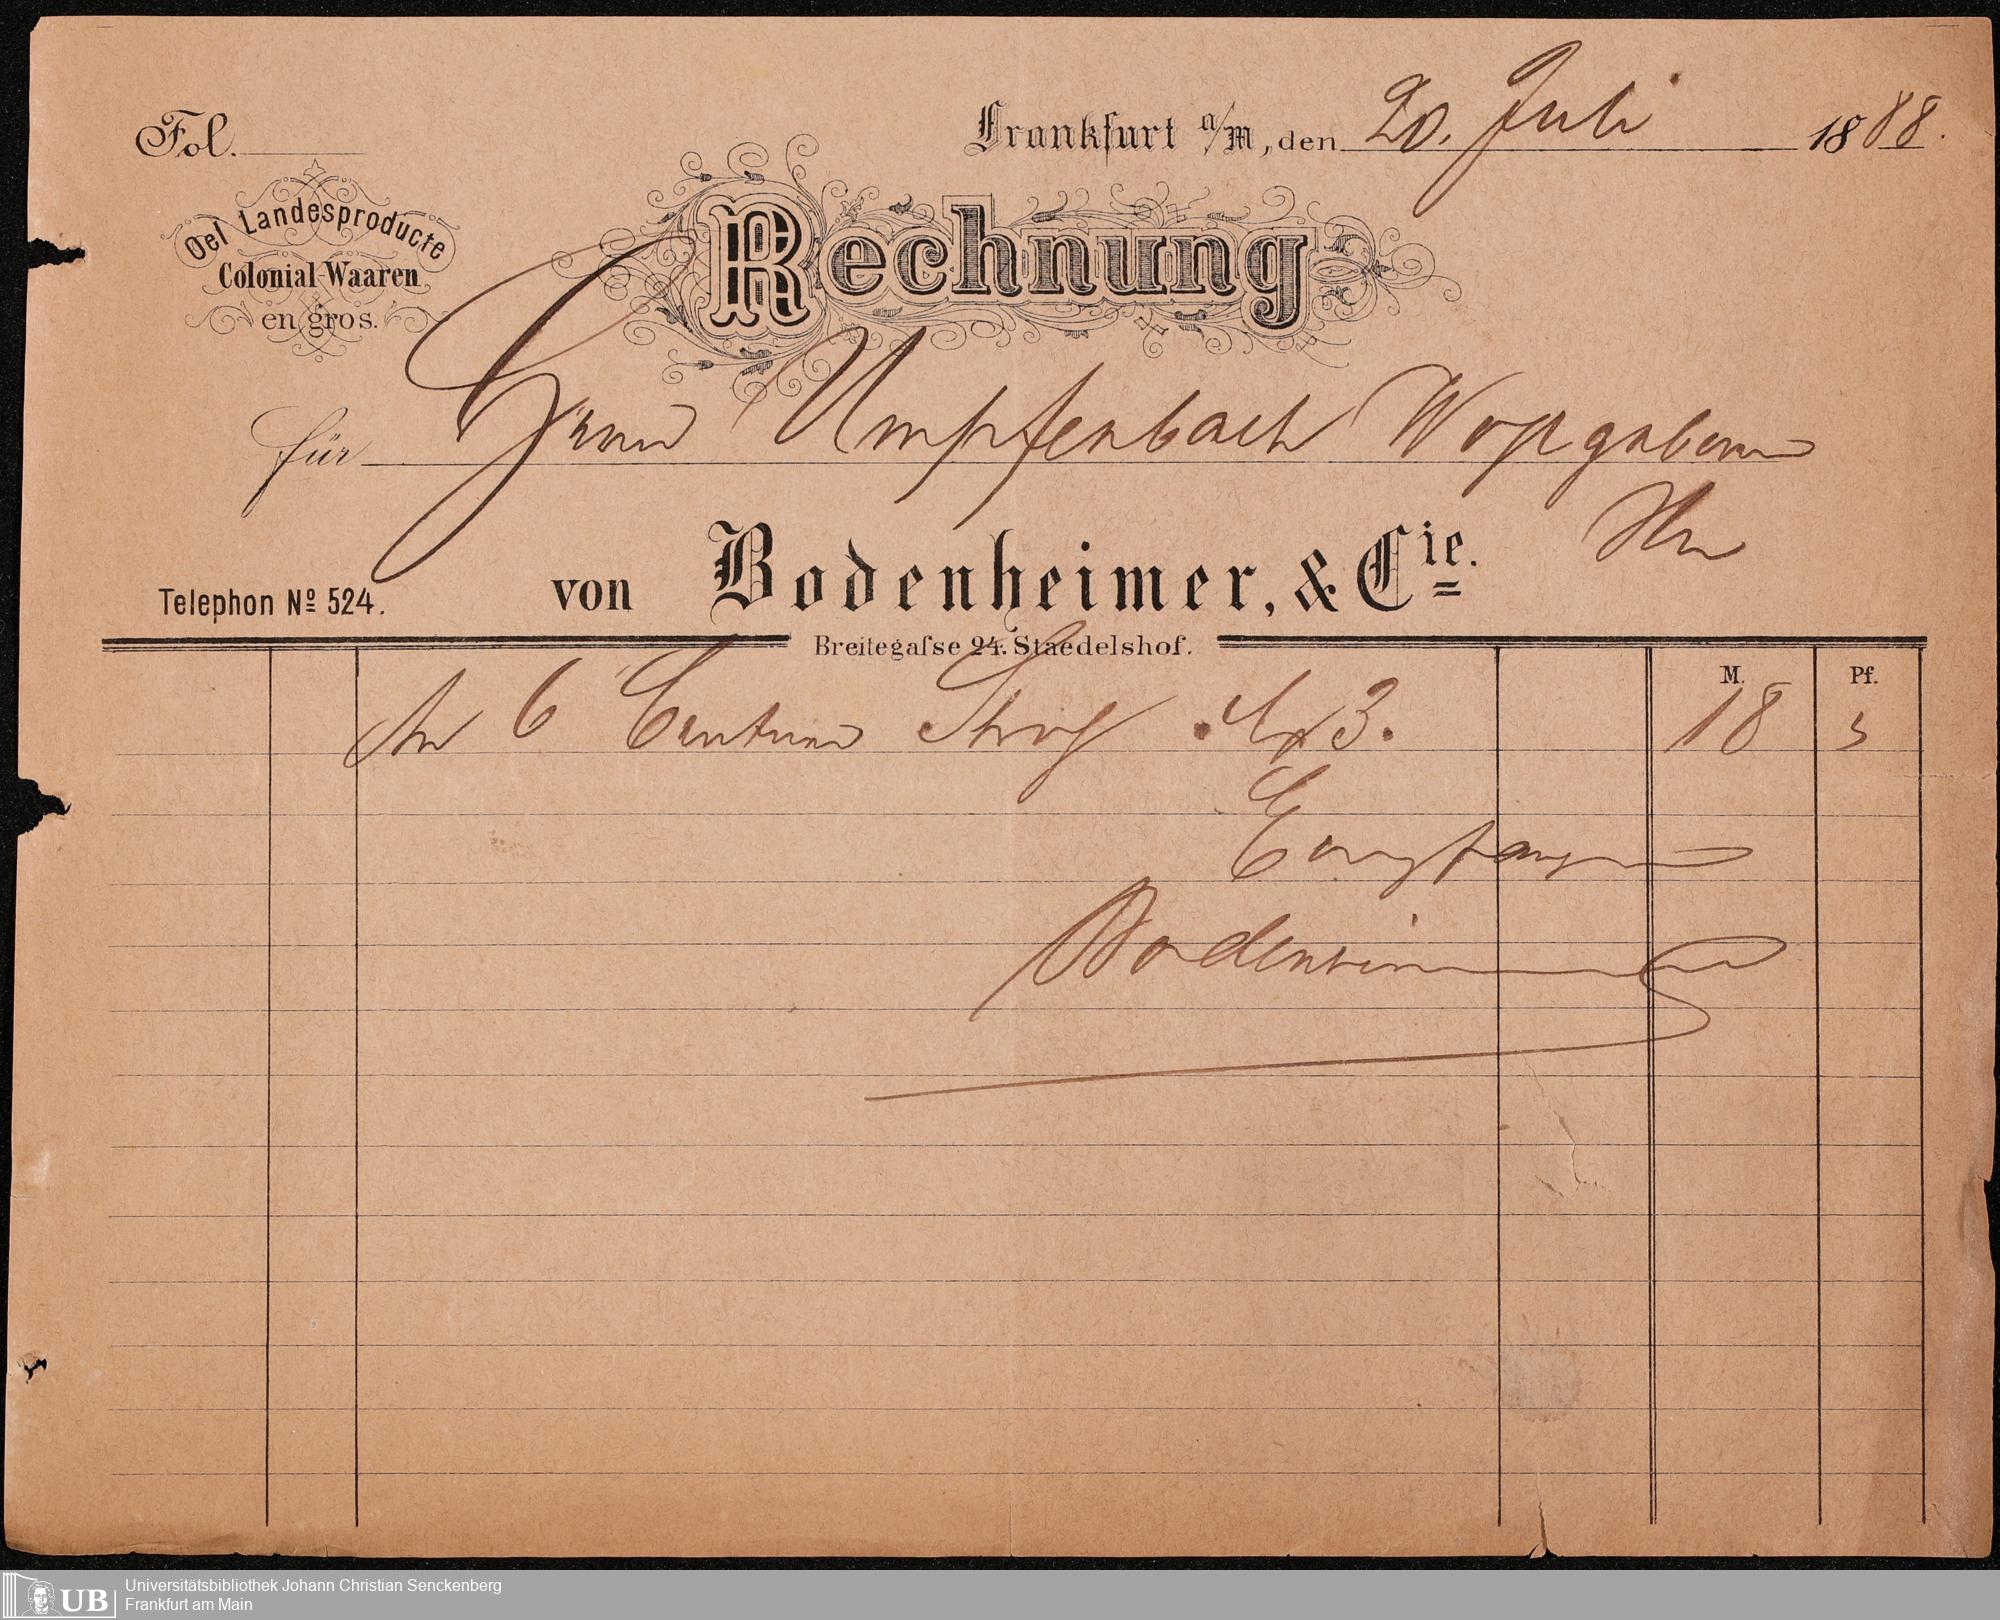 Fol.
Frankfurt a/M, den 20. Juli 1888.
Oel Landesproducte
Colonial-Waaren
en gros.
Rechnung
für Herrn Umpfenbach
von Bodenheimer, & Cie.
Telephon No 524.
Breitegasse 24. Staedelshof.
M. Pf.
An 6 Centner Stroh M 3. 18
Empfangen
Bodenheimer
Universitätsbibliothek Johann Christian Senckenberg
Frankfurt am Main
UB